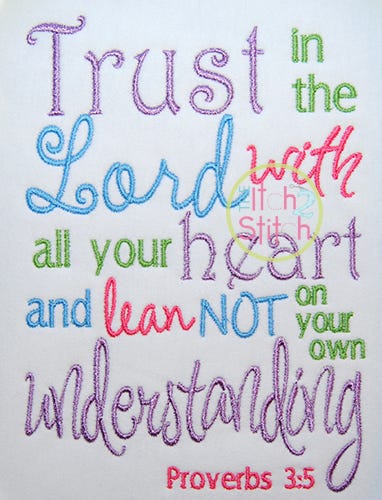 Trust in
the
Lord with
all your heart
and lean NOT on
your
own
understanding
Proverbs 3:5
THE Itch 2
Stitch